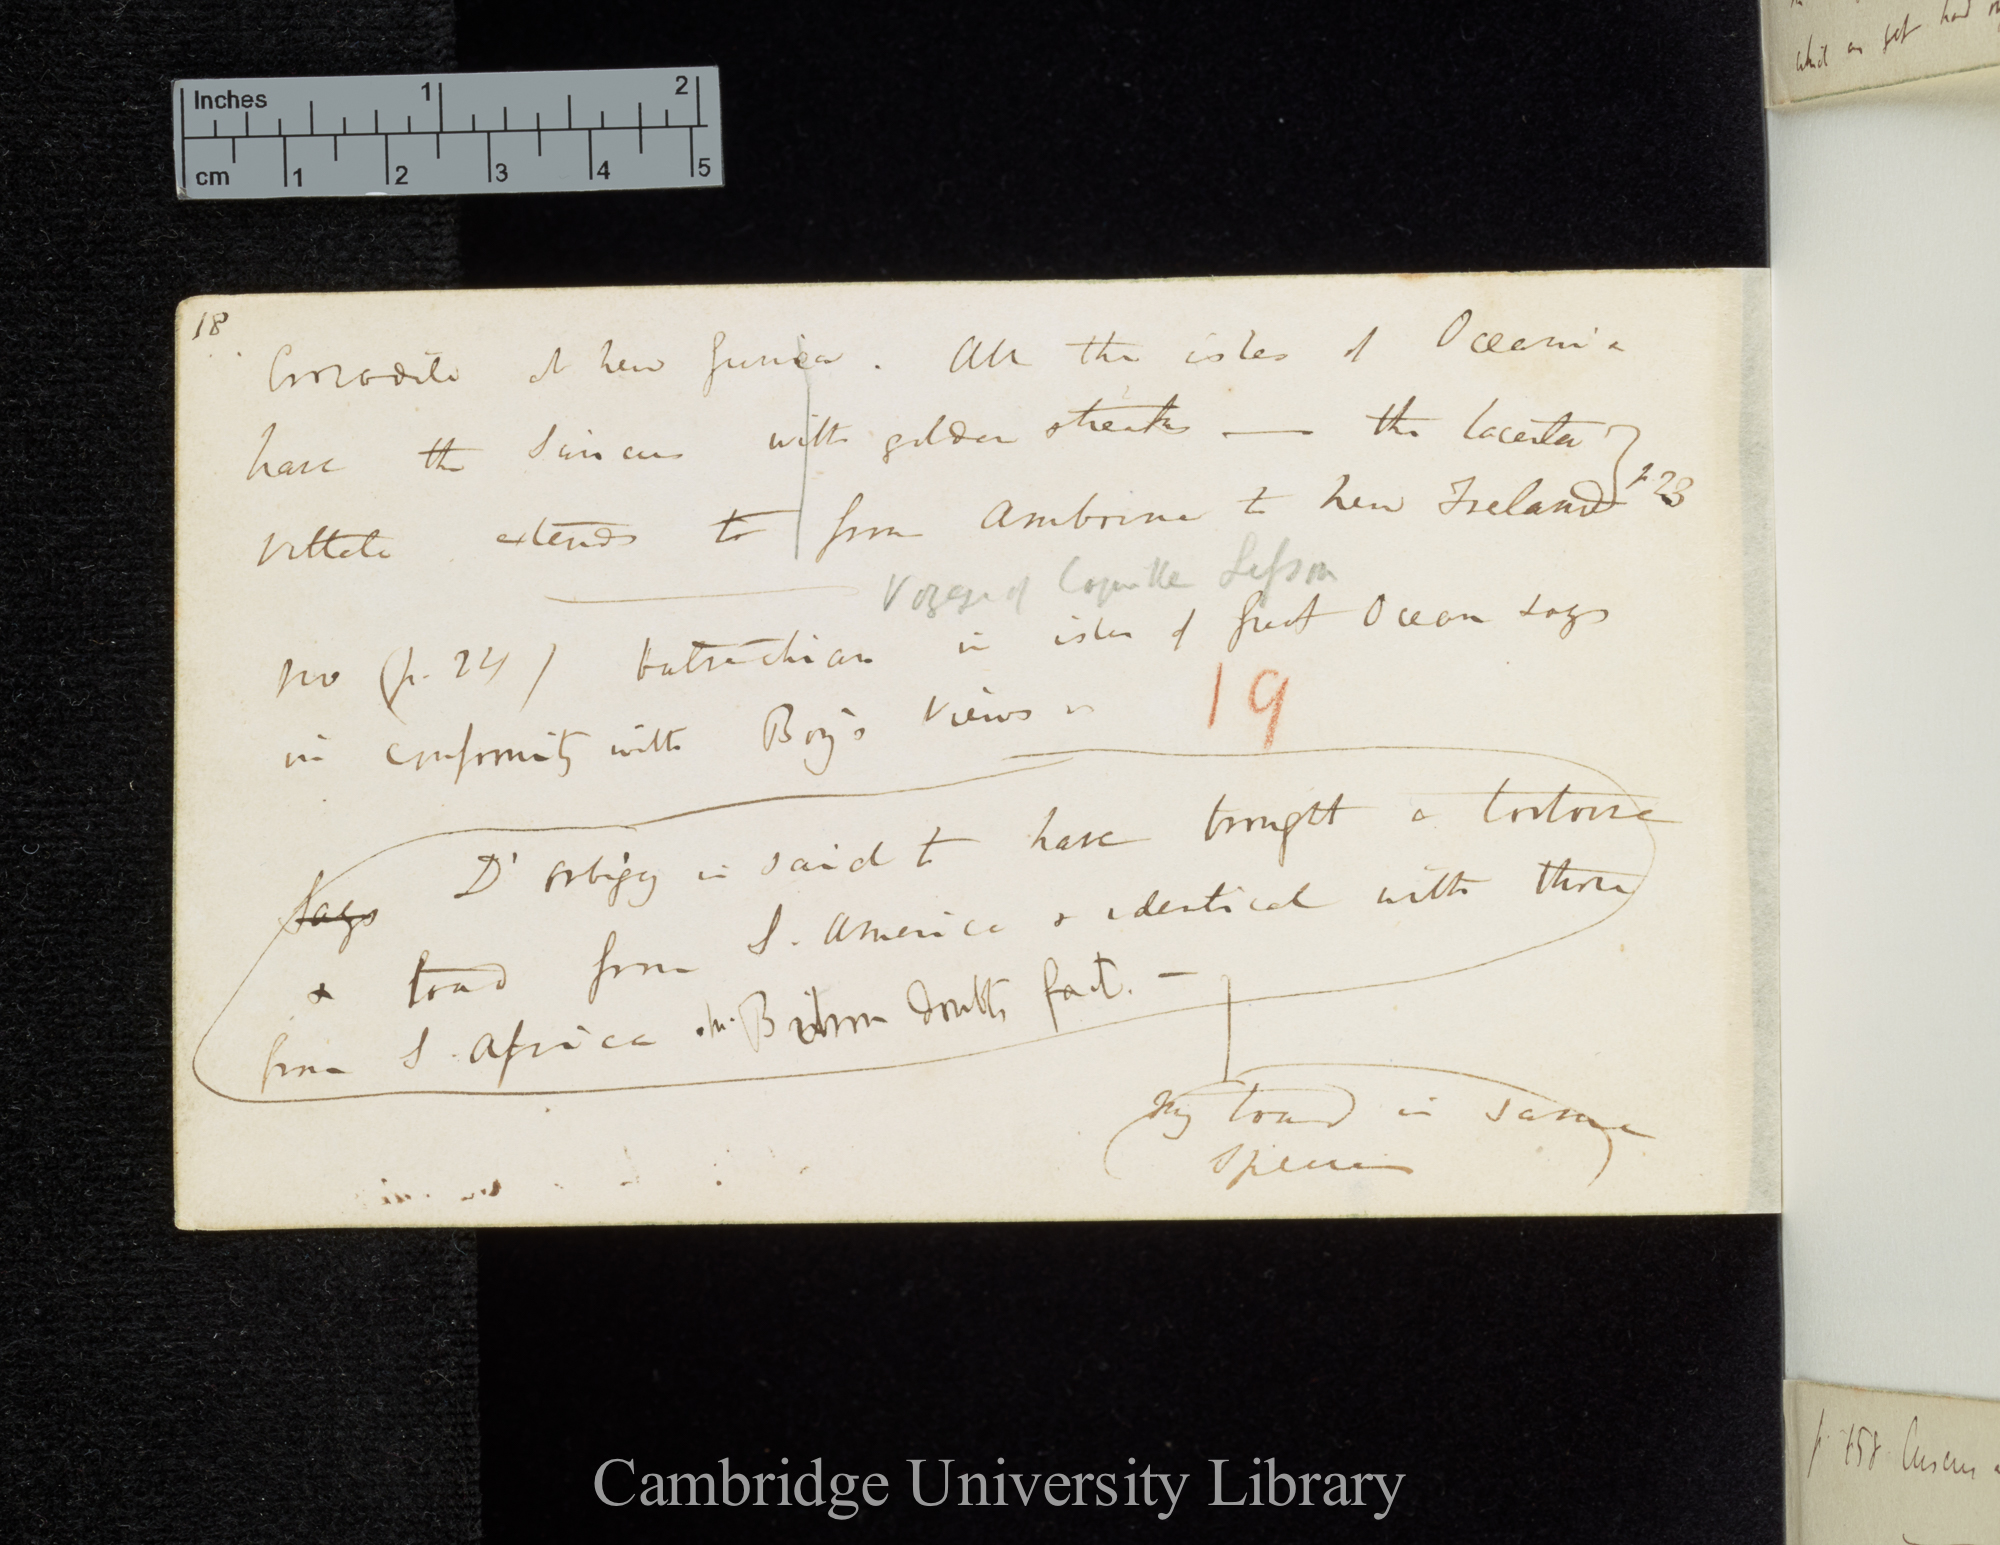 Inches 1 2
cm 1 2 3 4 5
18
Crocodile at New Guinea. All the isles of Oceania
have the Scincus with golden streaks — the lacerta
vittata extends to from Amboina to New Ireland } p 23
Voyage of Coquille Lesson
No (p. 24) batrachian in isles of great Ocean says
in conformity with Bory's views
19
says D'orbigny is said to have brought a tortoise
& toad from S. America & identical with those
from S. Africa Mr. Bibron doubts fact. —
My toad is same
species
Cambridge University Library